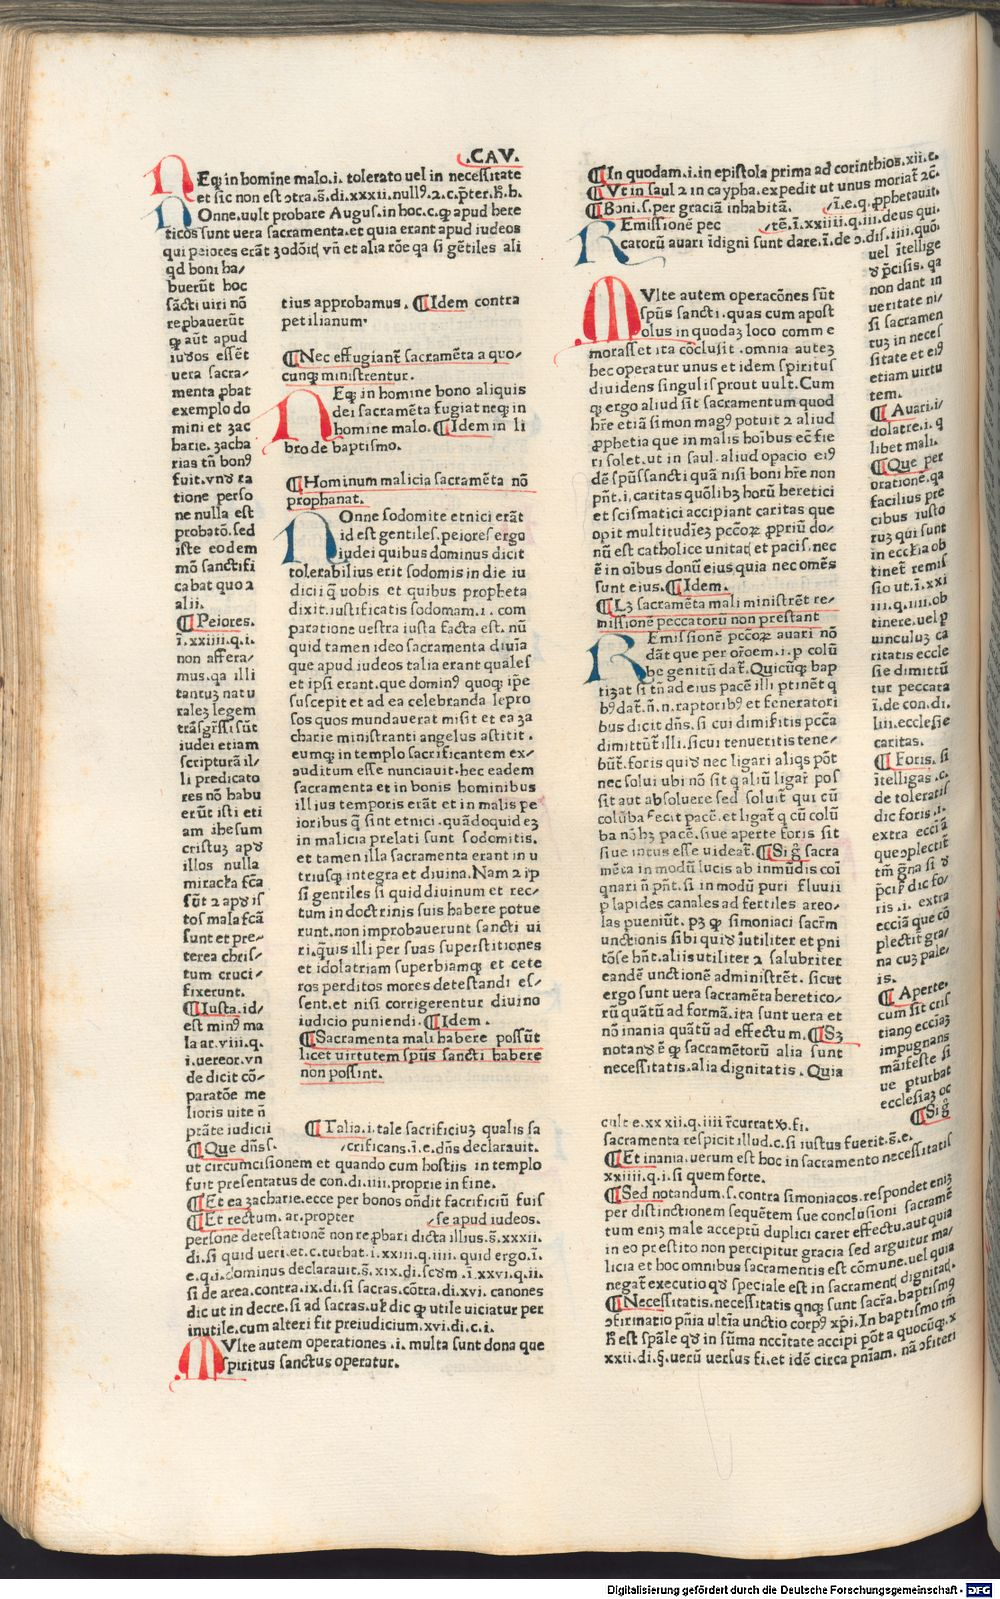 .CAV.
NEq; in homine malo.i. tolerato uel in necessitate
et sic non est ɔtra.s̄.di.xxxii.null9.2.c.p̄ter.h̄.b.
NOnne.uult probare Augus.in hoc.c.ꝙ apud here
ticos sunt uera sacramenta.et quia erant apud iudeos
qui peiores erāt
qđ boni ha/
buerūt hoc
sācti uiri nō
reꝑbauerūt
ꝙ aūt apud
iuđos essēt
uera sacra/
menta ꝓbat
exemplo do
mini et zac
barie. zacha
rias tn̄ bon9
fuit.vnđ ra
tione perso
ne nulla est
probatō.sed
iste eodem
mō sanctifi
cabat quo 2
alii.
¶ Peiores.
ī.xxiiii.q.i.
non affera/
mus.qa illi
tantuʒ natu
raleʒ legem
trāsgr̄ssi sūt
iudei etiam
scripturā il/
li predicato
res nō habu
erūt isti eti
am ihesum
cristuʒ apđ
illos nulla
miracl'a fc̄a
sūt 2 apđ is
tos mala fcā
sunt et pre/
terea chris/
tum cruci/
fixerunt.
¶ Iusta.id/
est min9 ma
la ar.viii.q.
i.uereor.vn
de dicit cō/
paratōe me
lioris uite ñ
prāte iudicii
tius approbamus. ¶Idem contra
petilianum·
¶Nec effugiant̄ sacramēta a quo/
cunqꝫ ministrentur.
NEqꝫ in homine bono aliquis
dei sacramēta fugiat neqꝫ in
homine malo. ¶Idem in li
bro de baptismo.
¶Hominum malicia sacramēta nō
prophanat.
NOnne sodomite etnici erāt
id est gentiles.peiores ergo
iudei quibus dominus dicit
tolerabilius erit sodomis in die iu
dicii q̄ uobis et quibus propheta
dixit.iustificatis sodomam.i. com
paratione uestra iusta facta est. nū
quid tamen ideo sacramenta diuīa
que apud iudeos talia erant quales
et ipsi erant.que domin9 quoqꝫ ip̄e
suscepit et ad ea celebranda lepro
sos quos mundauerat misit et ea za
charie ministranti angelus astitit.
eumqꝫ in templo sacrificantem ex/
auditum esse nunciauit.hec eadem
sacramenta et in bonis hominibus
illius temporis erāt et in malis pe
ioribus q̄ sint etnici.quādoquideʒ
in malicia prelati sunt sodomitis.
et tamen illa sacramenta erant in u
triusqꝫ integra et diuina. Nam 2 ip
si gentiles si quid diuinum et rec/
tum in doctrinis suis habere potue
runt.non improbauerunt sancti ui
ri.q̄uis illi per suas superstitiones
et idolatriam superbiamqꝫ et cete
ros perditos mores detestandi es/
sent.et nisi corrigerentur diuino
iudicio puniendi. ¶Idem.
¶Sacramenta mali habere possūt
licet uirtutem spūs sancti habere
non possint.
¶ Talia.i.tale sacrificiuʒ qualis sa
¶ Que dn̄s s. /crificans.ī.e.dn̄s declarauit.
ut circumcisionem et quando cum hostiis in templo
fuit presentatus de con.di.iiii.proprie in fine.
¶Et ea zacharie.ecce per bonos on̄dit sacrificiū suis
¶Et rectum. ar.propter /se apud iudeos.
persone detestationē non reꝓbari dicta illius.s̄.xxxii.
di.si quid ueri.et.c.turbat.i.xxiii.q.iiii.quid ergo.ī.
e.q.i.dominus declarauit.s̄.xix.di.scđm.i.xxvi.q.ii.
si de area.contra.ix.di.si sacras.cōtra.di.xvi. canones
dic ut in decre.si ad sacras.ul' dic ꝙ utile uiciatur per
inutile.cum alteri fit preiudicium.xvi.di.c.i.
MVlte autem operationes.i.multa sunt dona que
spiritus sanctus operatur.
¶In quodam.i.in epistola prima ad corinthios.xii.c.
¶Vt in saul 2 in caypha.expedit ut unus moriat̄ 2c̄.
¶Boni.s.per graciā inhabitā. /ī.e.q.ꝓphetauit.
REmissionē pec /tē.ī.xxiiii.q.iii.deus qui.
catorū auari īdigni sunt dare.ī.de ɔ.dis.iiii.quō.
MVlte autem operacōnes sūt
spūs sancti.quas cum apost
olus in quodaʒ loco comme
morasset ita cōclusit.omnia auteʒ
hec operatur unus et idem spiritus
diuidens singulis prout uult. Cum
qꝫ ergo aliud sit sacramentum quod
hr̄e etiā simon mag9 potuit 2 aliud
ꝓphetia que in malis hoībus ec̄ fie
ri solet.ut in saul.aliud opacio ei9
dē spūssancti quā nisi boni hr̄e non
pn̄t.i.caritas quōlibʒ horū heretici
et scismatici accipiant caritas que
opit multitudīeʒ pccōꝝ ꝓpriū do/
nū est catholice unitat̄ et pacis.nec
ē in oībus donū eius quia nec omēs
sunt eius. ¶Idem.
¶Lʒ sacramēta mali ministrēt re/
missionē peccatorū non prestant
REmissionē pccōꝝ auari nō
dāt que per or̄oem.i.p colū
be genitū dat̄. Quicūqꝫ bap
tiʒat si tn̄ ad eius pacē illi ptinēt q
b9 dat̄.n̄.n.raptorib9 et feneratori
bus dicit dn̄s.si cui dimisitis pcc̄a
dimittūt̄ illi.sicui tenueritis tene/
būt̄.foris quiđ nec ligari aliq̄s pōt
nec solui ubi nō sit q aliū ligar̄ pos
sit aut absoluere sed soluit̄ qui cū
colūba fecit pacē.et ligat̄ q cū colū
ba nō hʒ pacē.siue aperte foris sit
siue intus esse uideat̄. ¶Sig̊ sacra
mēta in modū lucis ab inmūdis coī
qnari n̄ pn̄t.si in modū puri fluuii
p̄ lapides canales ad fertiles areo/
las pueniūt. pʒ ꝙ simoniaci sacr̄m
unctionis sibi quiđ īutiliter et pni
tōse hn̄t.aliis utiliter 2 salubriter
eandē unctionē administrēt. sicut
ergo sunt uera sacramēta heretico/
rū quātū ad formā.ita sunt uera et
nō inania quātū ad effectum. ¶Sʒ
notanđ ē ꝙ sacramētorū alia sunt
necessitatis.alia dignitatis. Quia
uel ītellige
đ p̄cisis. qa
non dant in
ueritate ni/
si sacramen
tuʒ in neces
sitate et ei9
etiam uirtu
tem.
¶ Auari.i/
dolatre.i.q
libet mali.
¶Que per
orationē.qa
facilius pre
cibus iusto
ruʒ qui sunt
in ecc̄lia ob
tinet̄ remis
sio ut.ī.xxi
iii.q.iiii.ob
tinere.uel ꝑ
uinculuʒ ca
ritatis eccle
sie dimittū
tur peccata
ī.de con.di.
iiii.ecclesie
caritas.
¶ Foris. si
ītelligas.c.
de toleratis
dic foris.i.
extra eccīā
que ɔplectit̄
tm̄ ḡna si đ
p̄cis̄ dic fo/
ris.i. extra
eccīā que cō
plectit̄ gra/
na cuʒ pale/
is.
¶ Aperte.
cum sit cris
tianʒ eccīaʒ
impugnans
māifeste si
ue ꝑturbat
ecclesiaʒ oc
¶Sig̊
culte e.xxxii.q.iiii r̄currat ꝟ. fi.
sacramenta respicit illud.c.si iustus fuerit.s̄.e.
¶Et inania.uerum est hoc in sacramento necessitatis
xxiiii.q.i.si quem forte.
¶Sed notandum.s.contra simoniacos.respondet eniʒ
per distinctionem sequētem sue conclusioni sacramē
tum eniʒ male acceptū duplici caret effectu.aut quia
in eo prestito non percipitur gracia sed arguitur ma/
licia et hoc omnibus sacramentis est cōmune.uel quia
negat̄ executio qđ speciale est in sacrament̄ dignitat̄.
¶Necessitatis.necessitatis qnqꝫ sunt sacr̄a.baptism9
ɔfirmatio pn̄ia ultīa unctio corp9 xp̄i.In baptismo tm̄
h̄ est sp̄ale qđ in sūma nccītate accipi pōt a quocūqꝫ.x
xxii.di.§.uerū uersus fi.et idē circa pnīam. nā ɔfiteri
Digitalisierung gefördert durch die Deutsche Forschungsgemeinschaft - DFG